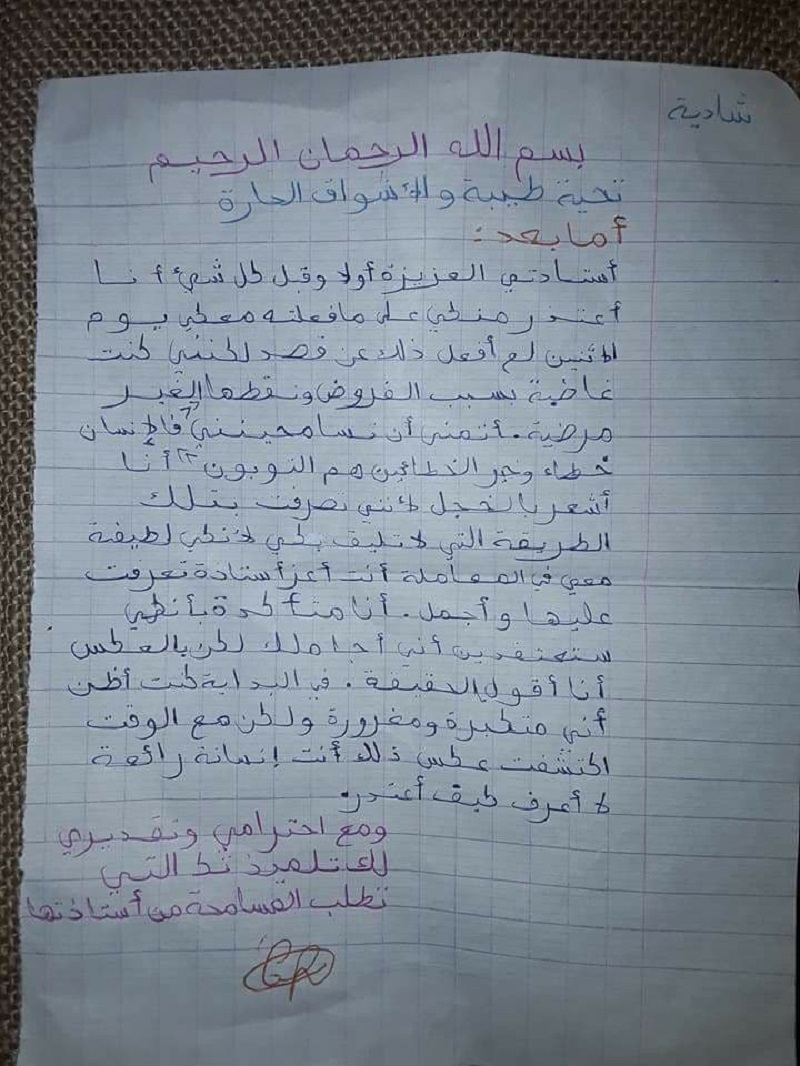 شادية
بسم الله الرحمان الرحيم
تحية طيبة والأشواق الحارة
أما بعد:
أستادتي العزيزة أولا وقبل كل شيئ أنا
أعتذر منكي على مافعلته معكي يوم
الاثنين لم أفعل ذلك عن قصد لكنني كنت
غاضبة بسبب الفروض ونقطها الغير
مرضية. أتمنى أن تسامحينني "فالإنسان
خطاء وخير الخطائين هم التوبون" أنا
أشعر بالخجل لأنني تصرفت بتلك
الطريقة التي لا تليق بكي لأنكي لطيفة
معي في المعاملة أنت أعز أستادة تعرفت
عليها وأجمل. أنا متأكدة بأنكي
ستعتقدين أني أجاملك لكن بالعكس
أنا أقول الحقيقة. في البداية كنت أظن
أني متكبرة ومغرورة ولكن مع الوقت
اكتشفت عكس ذلك أنت إنسانة رائعة
لا أعرف كيف أعتدر.
ومع احترامي وتقديري
لك تلميذتك التي
تطلب المسامحة من أستاذتها